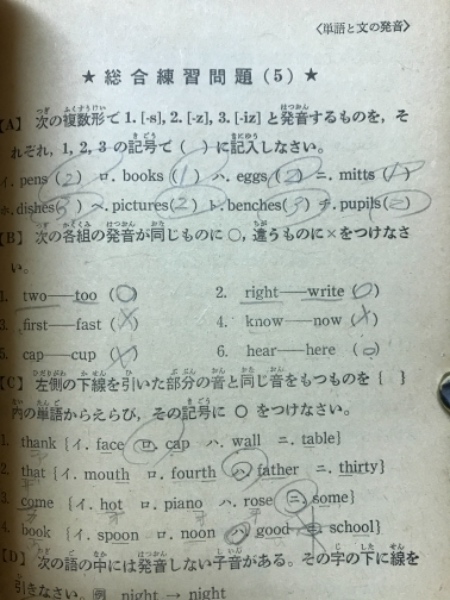 〈単語と文の発音〉
★ 総合練習問題 (5) ★
[A] 次の複数形で 1. [-s], 2. [-z], 3. [-iz] と発音するものを, そ
れぞれ, 1, 2, 3 の記号で ( ) に記入しなさい。
イ. pens (2) ロ. books (1) ハ. eggs (2) ニ. mitts (1)
ホ. dishes(3) ヘ. pictures(2) ト. benches(3) チ. pupils(2)
[B] 次の各組の発音が同じものに ○, 違うものに×をつけなさ
い。
1. two——too (○) 2. right——write (○)
3. first——fast (×) 4. know——now (×)
5. cap——cup (×) 6. hear——here (○)
[C] 左側の下線を引いた部分の音と同じ音をもつものを { }
内の単語からえらび, その記号に ○ をつけなさい。
1. thank {イ. face ロ. cap ハ. wall ニ. table}
2. that {イ. mouth ロ. fourth ハ. father ニ. thirty}
3. come {イ. hot ロ. piano ハ. rose ニ. some}
4. book {イ. spoon ロ. noon ハ. good ニ. school}
[D] 次の語の中には発音しない子音がある。その字の下に線を
引きなさい。 例 night → night